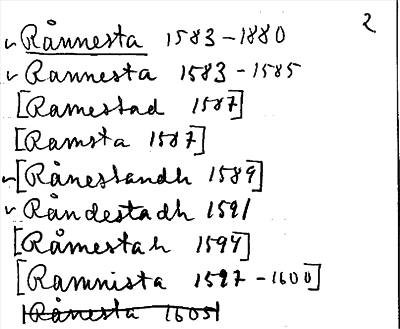 2
✓ Rånnesta 1583-1880
✓ Rannesta 1583-1585
[Ramestad 1587]
[Ramsta 1587]
✓ [Rånestandh 1589]
✓ Råndestadh 1591
[Råmestah 1594]
[Ramnista 1597-1600]
[Rånesta 1605]